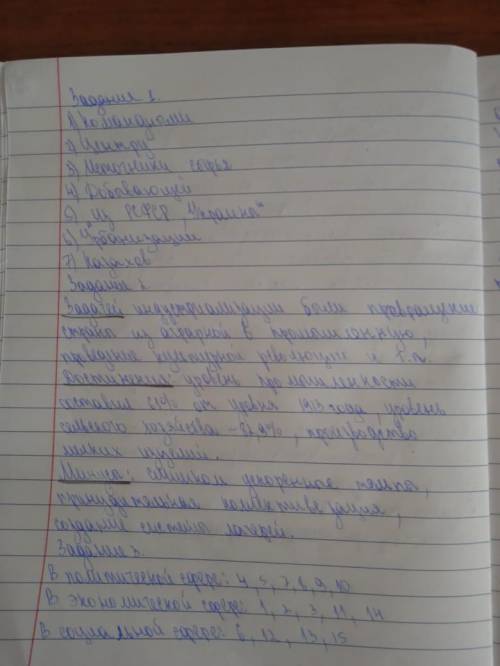 Задание 1.
1) Командами
2) Центру
3) Источники сырья
4) Добывающей
5) "Из РСФСР, Украина"
6) Урбанизации
7) Казахов
Задание 2.
Задачей индустриализации были превращение
страна из аграрной в промышленную,
проведение культурной революции и т.п.
Достижения: уровень промышленности
составил 61% от уровня 1913 года, уровень
сельского хозяйства - 82,9%, производство
мелких изделий.
Минисы: слишком ускоренное темпа,
принудительная коллективизация,
создание система лагерей.
Задание 3.
В политической сфере: 4, 5, 7, 8, 9, 10
В экономической сфере: 1, 2, 3, 11, 14
В социальной сфере: 6, 12, 13, 15